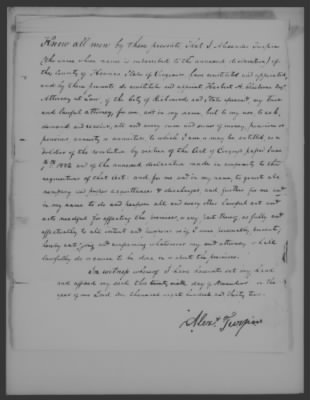 Know all men by these presents, That I Alexander Turpin
(the same whose name is subscribed to the annexed declaration) of
the County of State of have constituted and appointed,
and by these presents do constitute and appoint Herbert A. Esqr
Attorney at Law, of the City of Richmond and State aforesaid, my true
and lawful attorney, for me, and in my name, but to my use, to ask,
demand and receive, all and every sum and sums of money, pension or
pensions annuity or annuities to which I am or may be entitled, as a
soldier of the revolution by virtue of the Act of Congress passed June
7th 1832 and of the annexed declaration made in conformity to the
requisitions of that Act: and for me and in my name, to grant
and proper acquittances & discharges, and further for me and
in my name to do and perform all and every other lawful act and
acts needful for effecting the premises, or any part thereof, as fully and
effectually to all intent and purpose as if I were personally present,
hereby ratifying and confirming whatsoever my said attorney shall
lawfully do or cause to be done in or about the premises.
In witness whereof I have hereunto set my hand
and affixed my seal this day of November in the
year of our Lord One thousand eight hundred and thirty two.
Alexr. Turpin